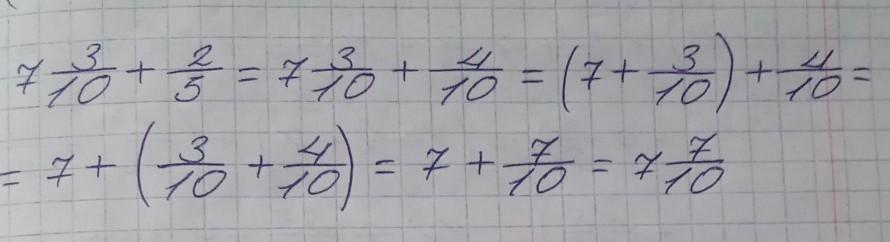 7 3/10 + 2/5 = 7 3/10 + 4/10 = (7 + 3/10) + 4/10 =
= 7 + (3/10 + 4/10) = 7 + 7/10 = 7 7/10